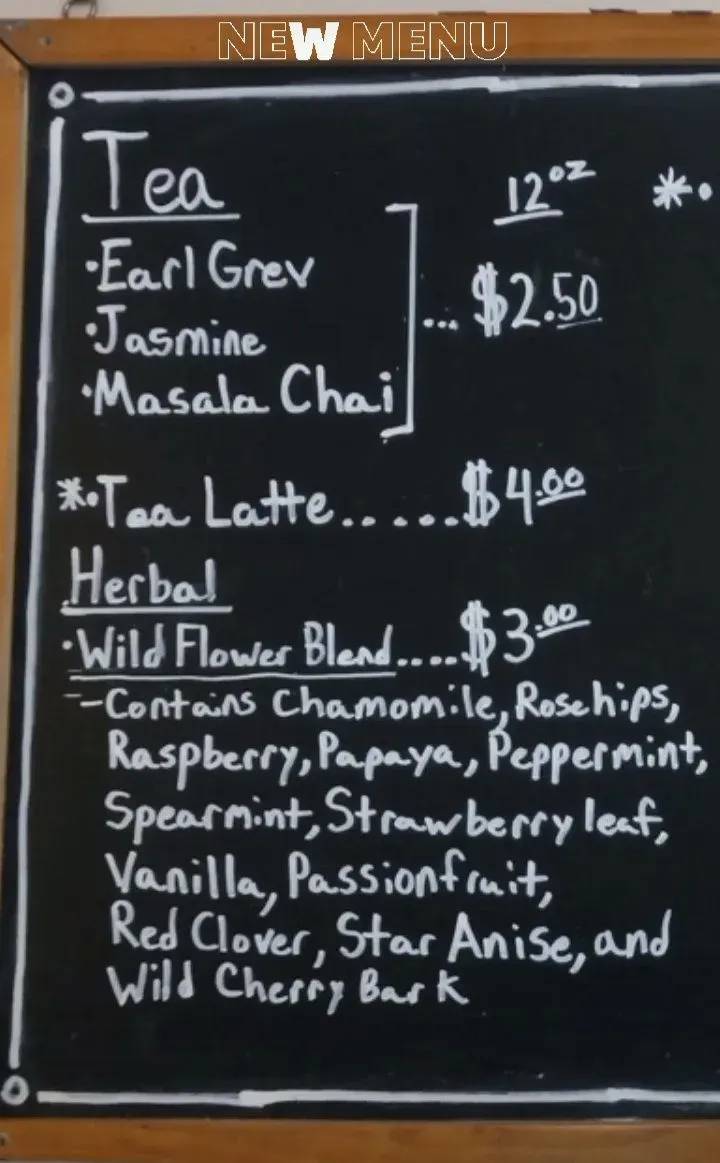 NEW MENU
Tea
12oz *•
•Earl Grey
•Jasmine
... $2.50
•Masala Chai
*•Tea Latte......$4.00
Herbal
•Wild Flower Blend....$3.00
-Contains Chamomile, Rosehips,
Raspberry, Papaya, Peppermint,
Spearmint, Strawberry leaf,
Vanilla, Passionfruit,
Red Clover, Star Anise, and
Wild Cherry Bark